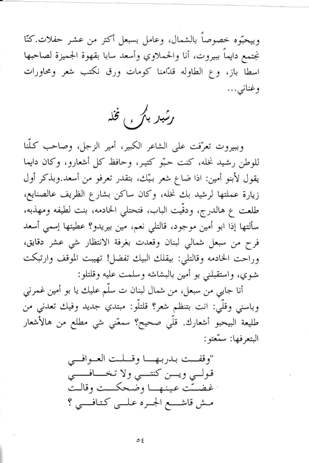 وبيحبّوه خصوصاً بالشمال، وعامل بسبعل أكتر من عشر حفلات.كنّا
نجتمع دايماً ببيروت، أنا والحملاوي وأسعد سابا بقهوة الجميزة لصاحبها
اسطا باز، وع الطاوله قدّامنا كومات ورق نكتب شعر ومحاورات
وغناني...
رشيد بك نخله
وببيروت تعرّفت على الشاعر الكبير، أمير الزجل، وصاحب كلّنا
للوطن رشيد نخله، كنت حبّو كتير، وحافظ كل أشعارو، وكان دايما
يقول لأبنو أمين: اذا ضاع شعر بيّك، بتقدر تعرفو من أسعد.وبذكر أول
زيارة عملتها لرشيد بك نخله، وكان ساكن بشارع الظريف عالصنايع،
طلعت ع هالدرج، ودقّيت الباب، فتحتلي الخادمه، بنت لطيفه ومهذبه،
سألتها إذا ابو أمين موجود، قالتلي نعم، مين بيريدو؟ عطيتها إسمي أسعد
فرح من سبعل شمالي لبنان وقعدت بغرفة الانتظار شي عشر دقايق،
وراحت الخادمه وقالتلي: بيقلك البيك تفضل! تهيبت الموقف وارتبكت
شوي، واستقبلني بو أمين بالبشاشه وسلمت عليه وقلتلو:
أنا جايي من سبعل، من شمال لبنان ت سلّم عليك يا بو أمين غمرني
وباسني وقلّي: انت بتنظم شعر؟ قلتلّو: مبتدي جديد وفيك تعدني من
طليعة البيحبو أشعارك. قلّي صحيح؟ سمّعني شي مطلع من هالأشعار
البتعرفها: سمّعتو:
"وقفـت بـدربـهـا وقـلـت العـوافـي
قـولـي ويـن كنتـي ولا تـخـافـي
غضـت عينـهـا وضـحكـت وقالـت
مـش قاشـع الجـره علـى كتـافـي ؟
٥٤